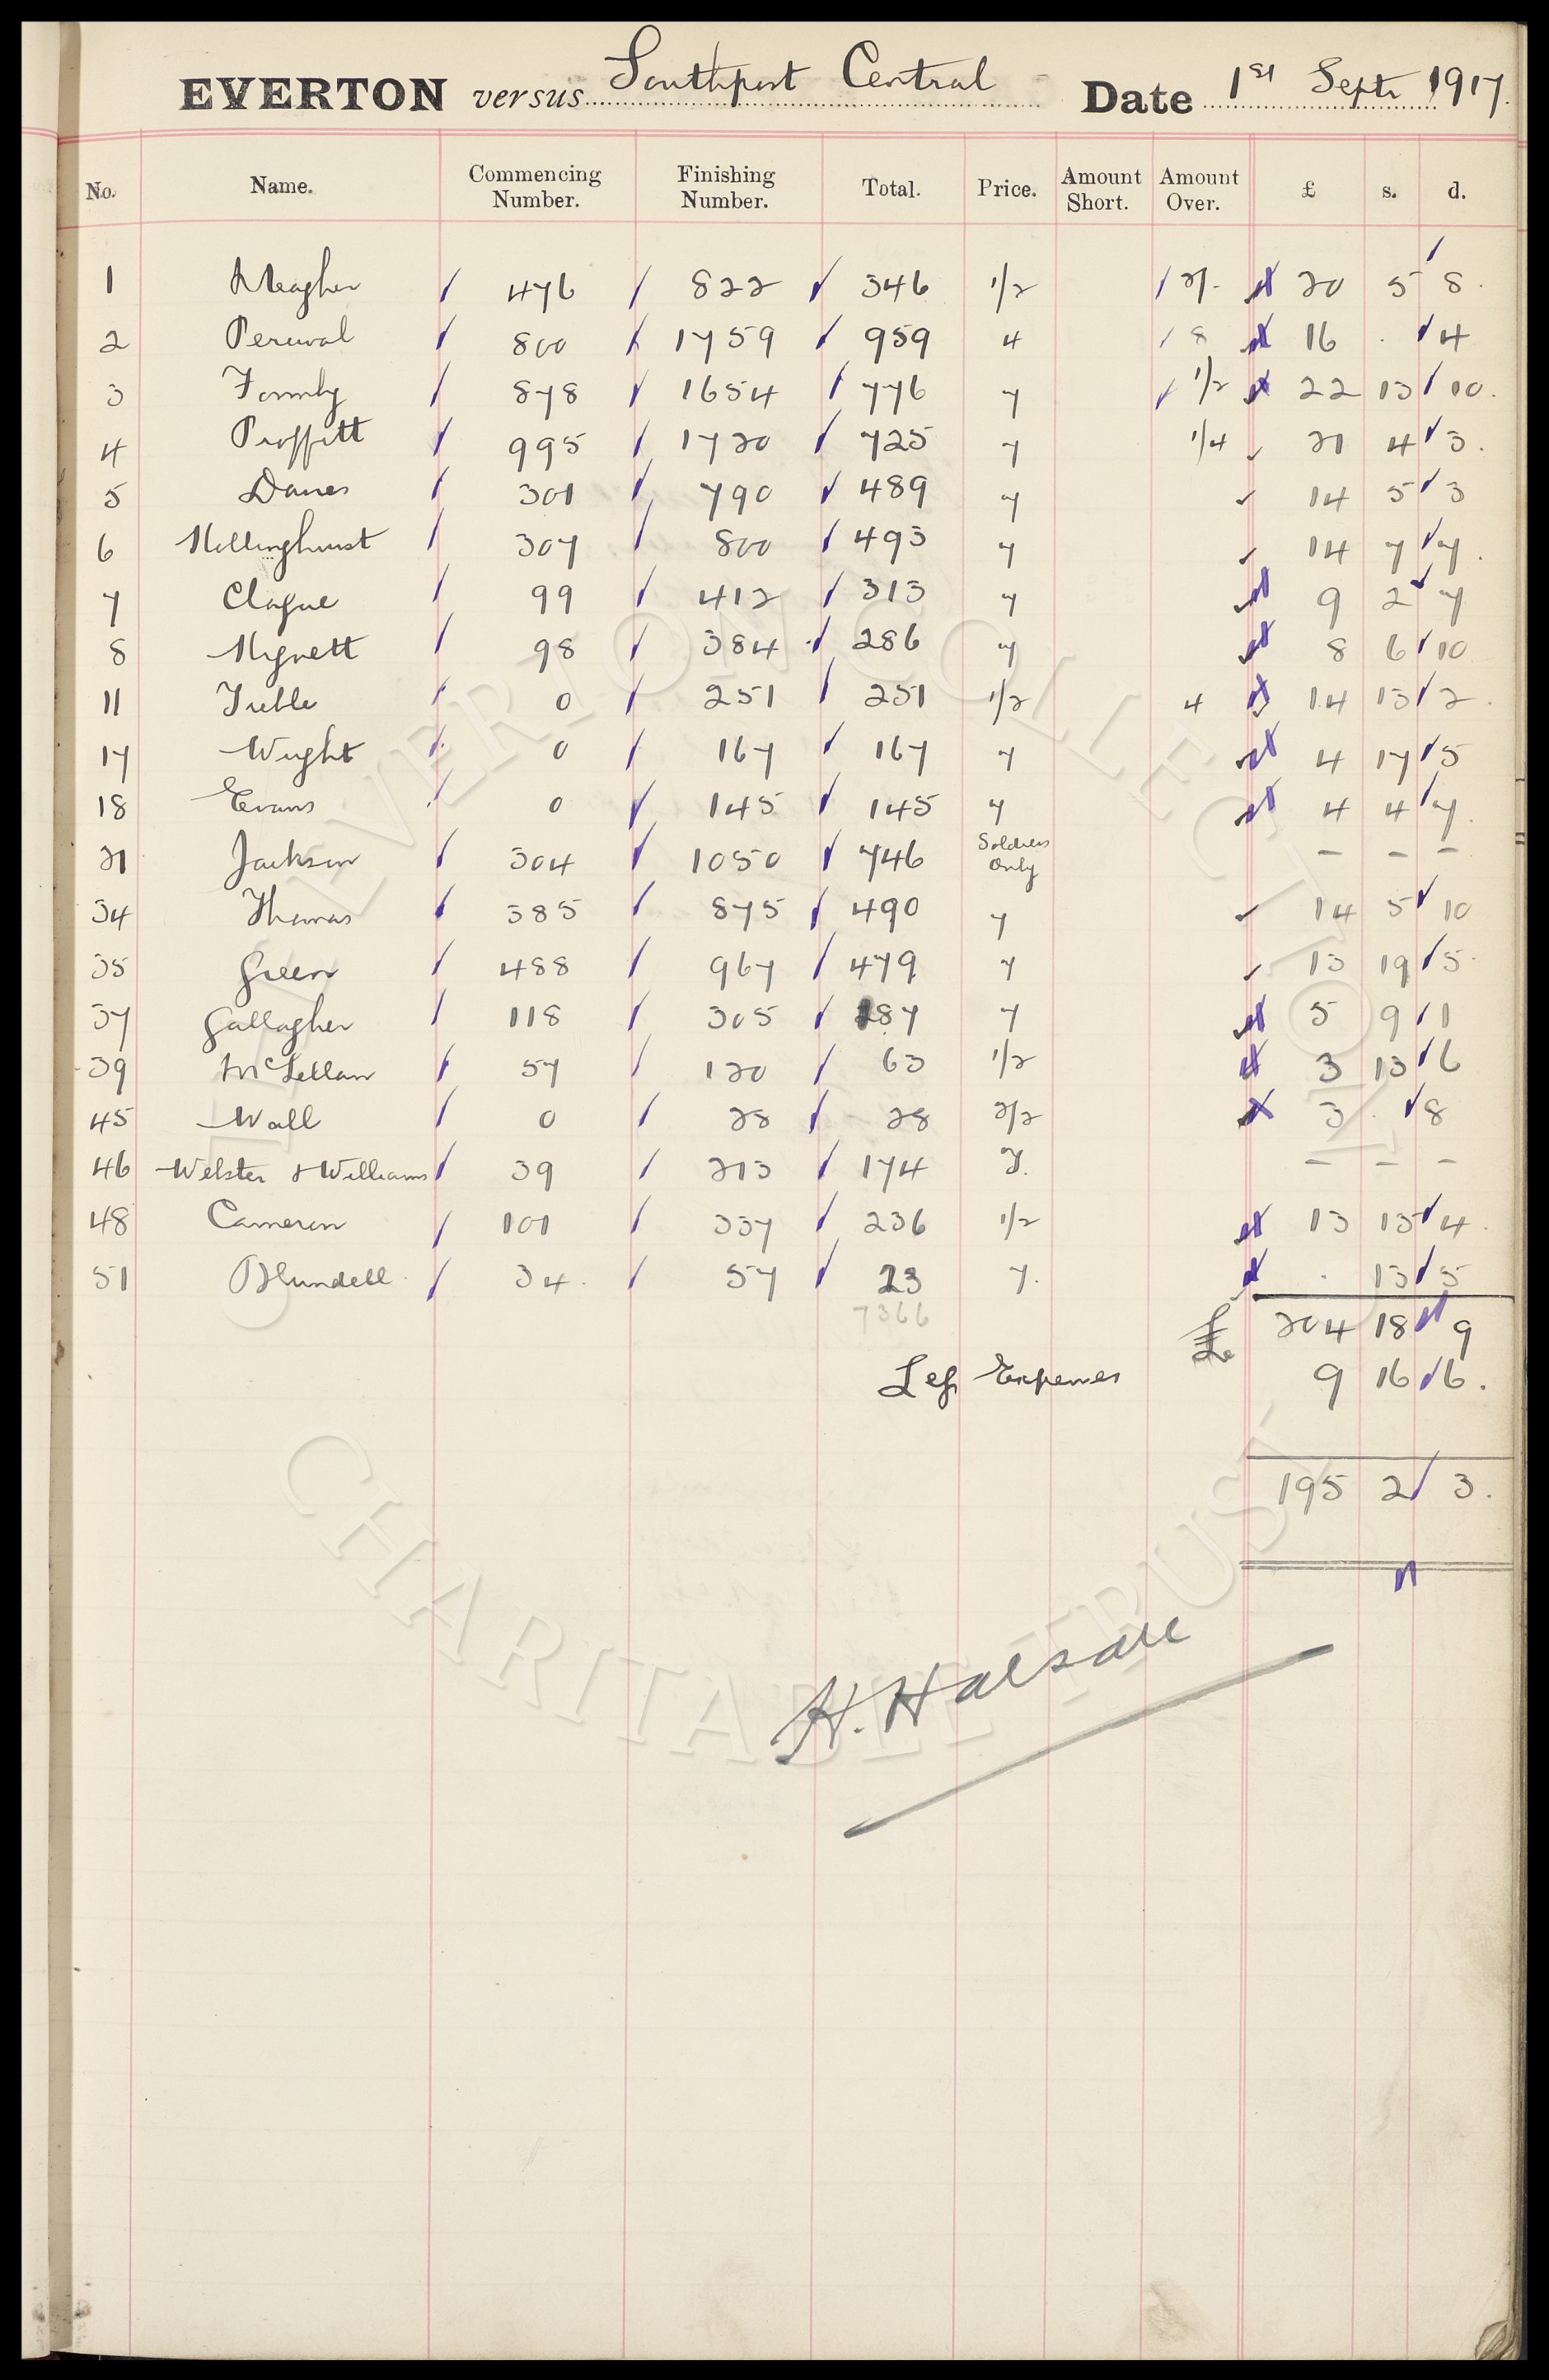 EVERTON versus Southport Central Date 1st Septr 1917.
No. Name. Commencing Number. Finishing Number. Total. Price. Amount Short. Amount Over. £ s. d.
1 Meagher 476 822 346 1/2 2/- 20 5 8.
2 Percival 800 1759 959 4 8 16 . 4
3 Formby 878 1654 776 7 1/2 22 13 10.
4 Proffitt 995 1720 725 7 1/4 21 4 3.
5 Davies 301 790 489 7 14 5 3
6 Hollinghurst 307 800 493 7 14 7 7.
7 Clague 99 412 313 7 9 2 7
8 Hignett 98 384 286 7 8 6 10
11 Treble 0 251 251 1/2 4 14 13 2.
17 Wright 0 167 167 7 4 17 5
18 Evans 0 145 145 7 4 4 7.
21 Jackson 304 1050 746 Soldiers Only - - -
34 Thomas 385 875 490 7 14 5 10
35 Green 488 967 479 7 13 19 5.
37 Gallagher 118 305 187 7 5 9 1
39 McLellan 57 120 63 1/2 3 13 6
45 Wall 0 28 28 2/2 3 . 8
46 Webster & Williams 39 213 174 7. - - -
48 Cameron 101 337 236 1/2 13 15 4.
51 Blundell. 34. 57 23 7. . 13 5
7366 £ 204 18 9
Less Expenses 9 16 6.
195 2 3.
H. Halsall
EVERTON COLLECTION
CHARITABLE TRUST